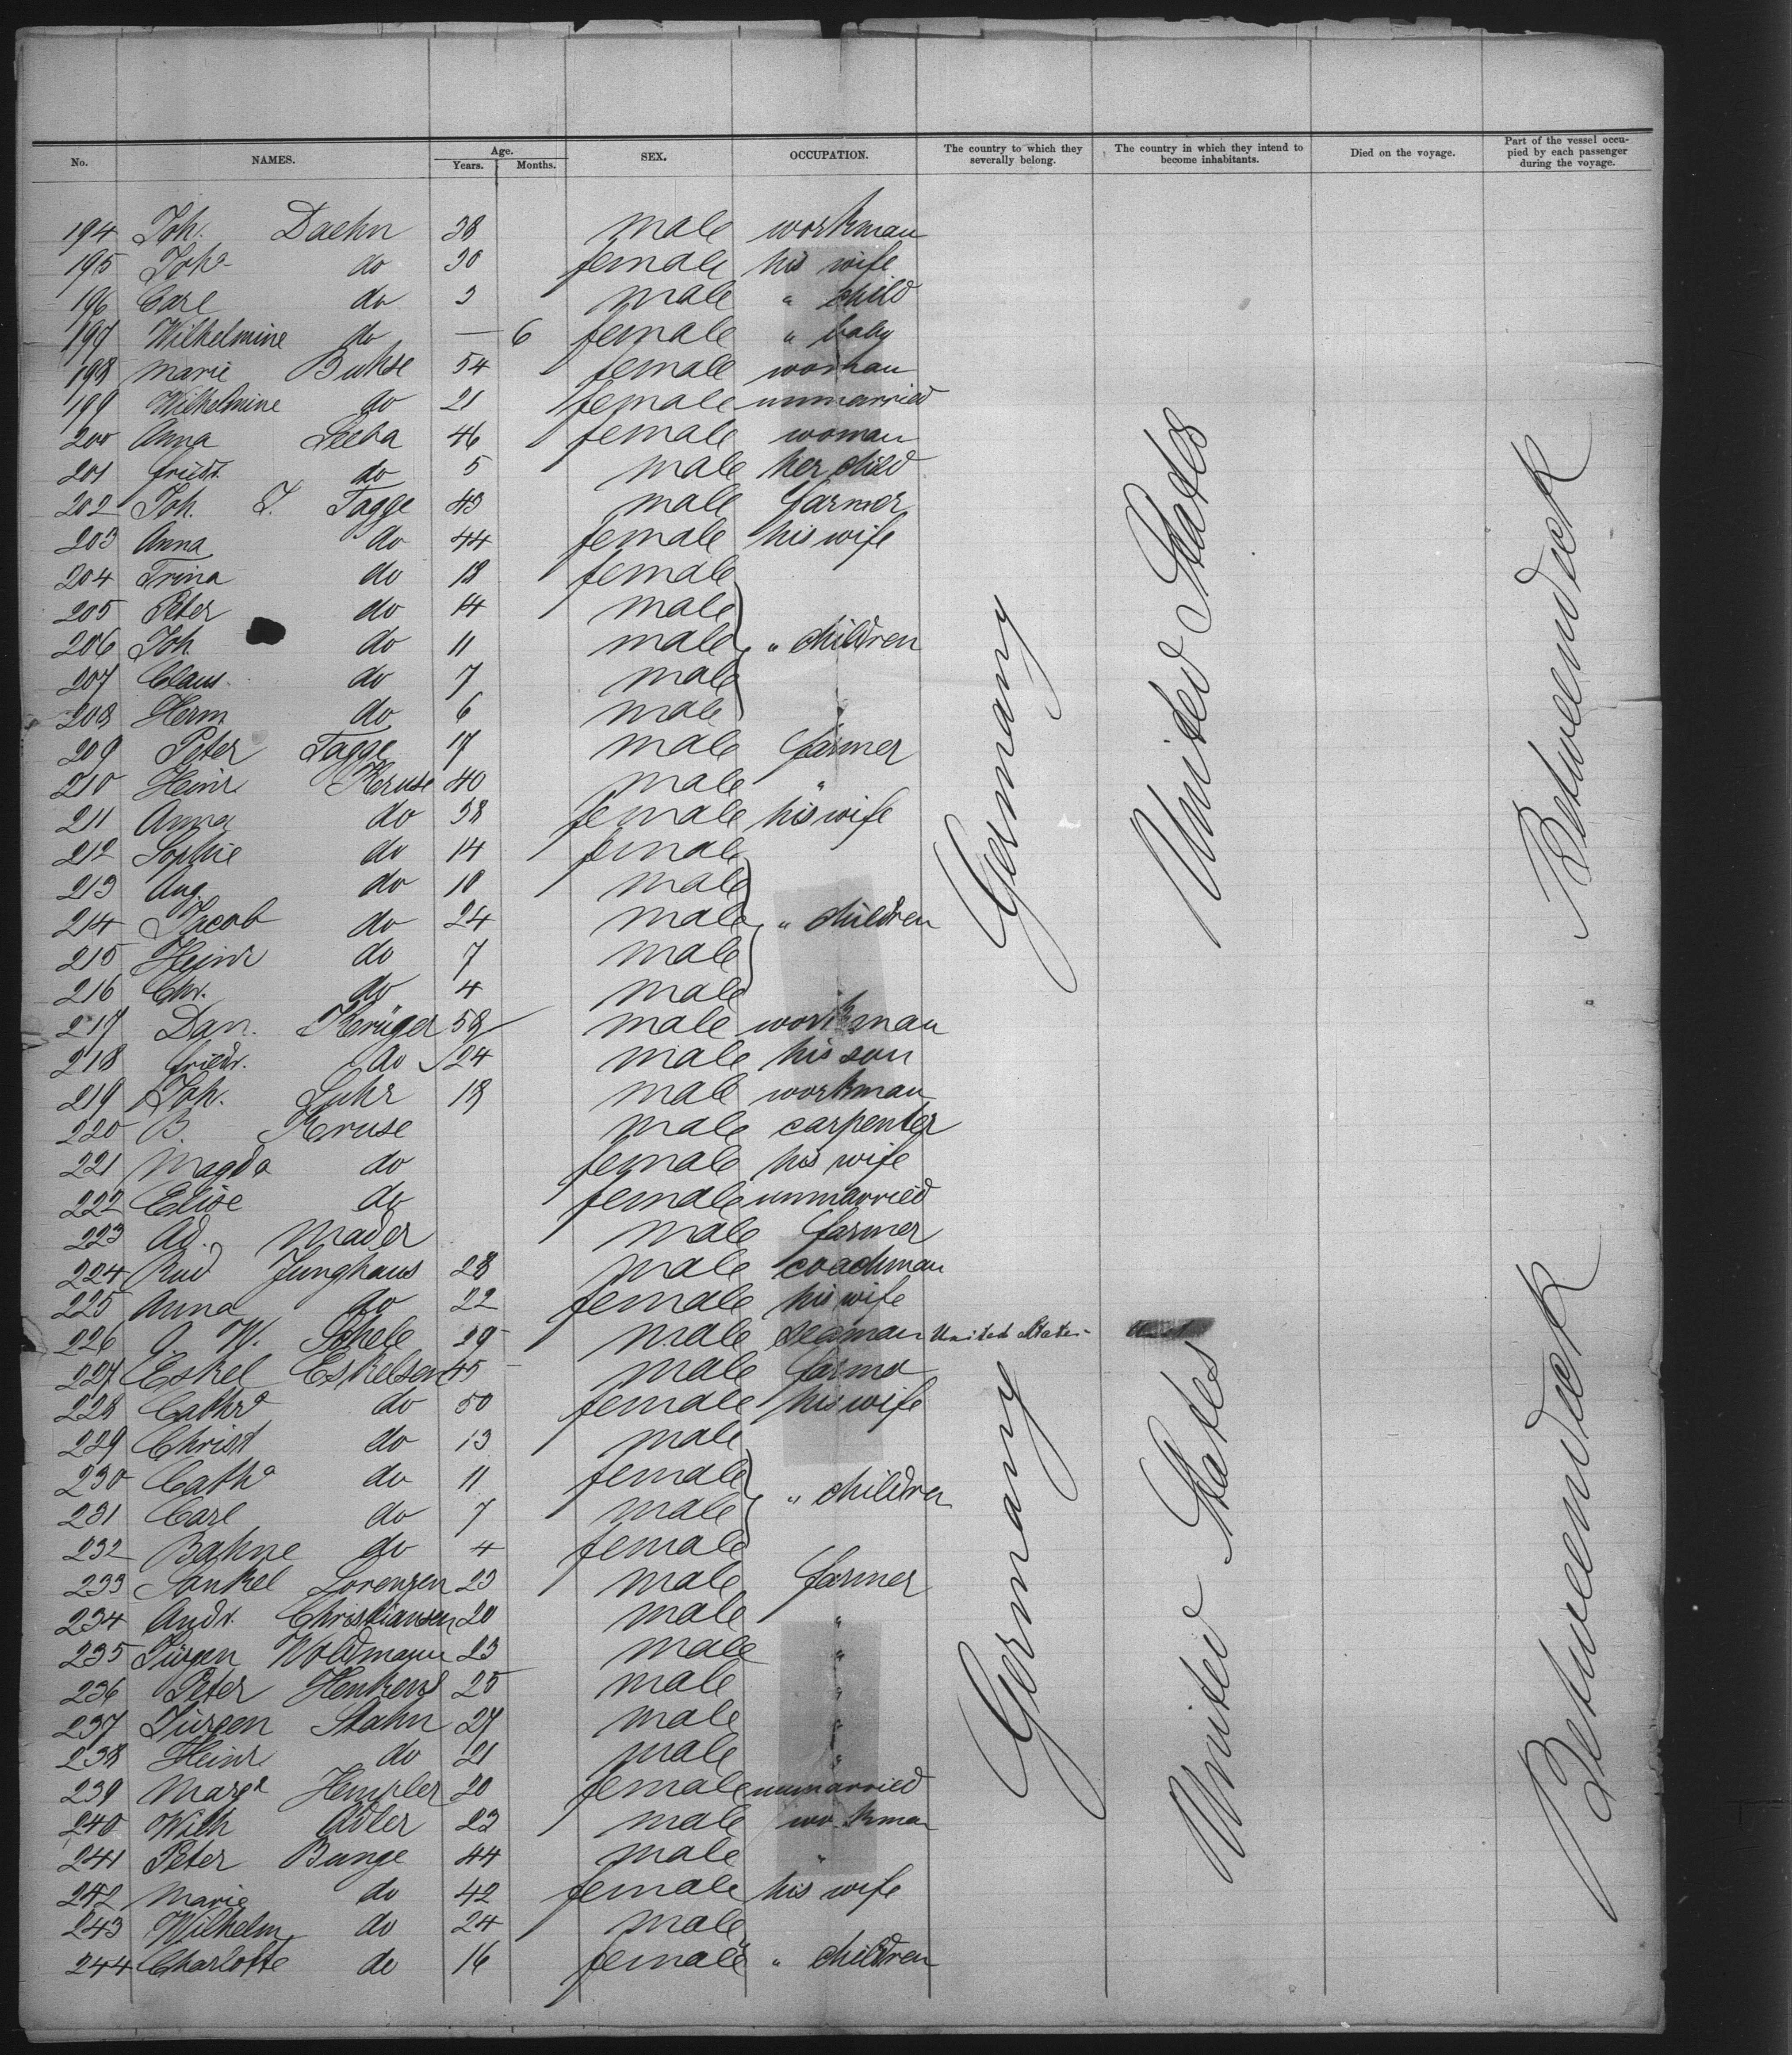 No. NAMES. Age. Years. Months. SEX. OCCUPATION. The country to which they severally belong. The country in which they intend to become inhabitants. Died on the voyage. Part of the vessel occupied by each passenger during the voyage.
194 Joh. Daehn 38 male workman
195 Joha do 30 female his wife
196 Carl do 3 male " child
197 Wilhelmine do — 6 female " baby
198 Marie Buhse 54 female woman
199 Wilhelmine do 21 female unmarried
200 Anna 46 female woman
201 Friedr. do 5 male her child
202 Joh. J. Tagge 43 male farmer
203 Anna do 44 female his wife
204 Trina do 18 female
205 Peter do 14 male
206 Joh do 11 male " children
207 Claus do 7 male
208 Herm do 6 male
209 Peter Tagge 17 male farmer
210 Heinr. Kruse 40 male "
211 Anna do 38 female his wife
212 Sophie do 14 female
213 Aug. do 10 male
214 Jacob do 24 male " children
215 Heinr do 7 male
216 Chr. do 4 male
217 Dan. Krüger 58 male workman
218 Friedr. do 24 male his son
219 Joh. Luhr 18 male workman
220 B. Kruse male carpenter
221 Magda do female his wife
222 Elise do female unmarried
223 Ad. Mader male farmer
224 Rud Junghans 28 male coachman
225 Anna do 22 female his wife
226 W. Schele 29 male seaman United States
227 Eskel Eskelsen 45 male farmer
228 Cathra do 50 female his wife
229 Christ do 13 male
230 Catha do 11 female
231 Carl do 7 male " children
232 Bahne do 4 female
233 Sönkel Lorenzen 23 male farmer
234 Andr. Christiansen 20 male "
235 Jürgen Woldmann 23 male "
236 Peter Henkens 25 male "
237 Jürgen Stahn 27 male "
238 Heinr. do 21 male "
239 Marga Hempler 20 female unmarried
240 Wilh Adler 23 male workman
241 Peter Bunge 44 male "
242 Marie do 42 female his wife
243 Wilhelm do 24 male
244 Charlotte do 16 female " children
Germany
United States
Betweendeck
Germany
United States
Betweendeck